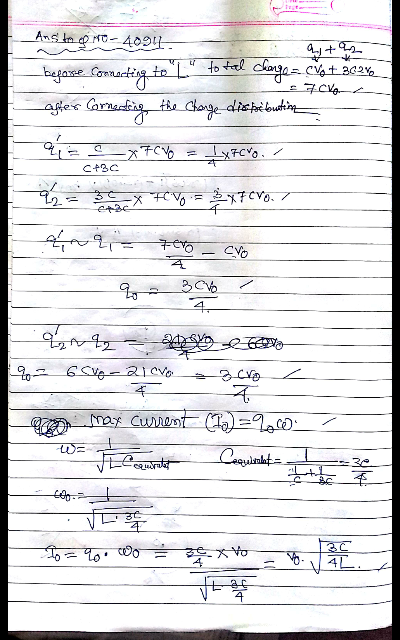 Ans to Q NO - 40911
q₁ + q₂
before connecting to "L" total charge = CV₀ + 3C2V₀
= 7CV₀
after connecting the charge distribution
q₁' = C/(C+3C) × 7CV₀ = 1/4 × 7CV₀.
q₂' = 3C/(C+3C) × 7CV₀ = 3/4 × 7CV₀.
q₁' ~ q₁ = 7CV₀/4 - CV₀
q₀ = 3CV₀/4
q₂' ~ q₂ =
q₀ = 6CV₀ - 21CV₀/4 = 3CV₀/4
max current (I₀) = q₀ω.
ω = 1/√(L Cequivalet) Cequivalet = 1/(1/C + 1/3C) = 3C/4
ω₀ = 1/√(L · 3C/4)
I₀ = q₀ · ω₀ = (3C/4 × V₀)/√(L 3C/4) = V₀ · √(3C/4L)